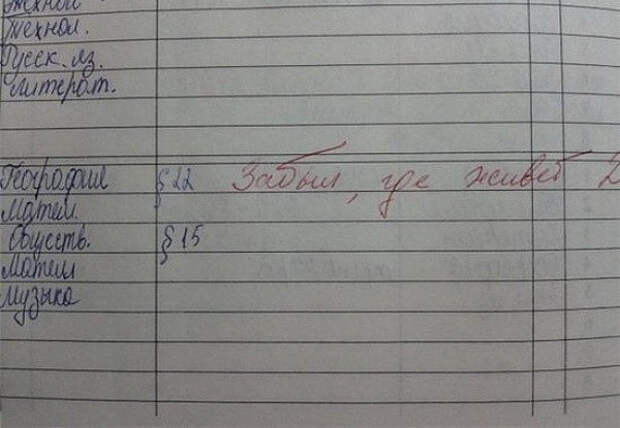 Технол.
Технол.
Русск. яз.
Литерат.
География § 22 Забыл, где живёт 2
Матем.
Обществ. § 15
Матем
Музыка